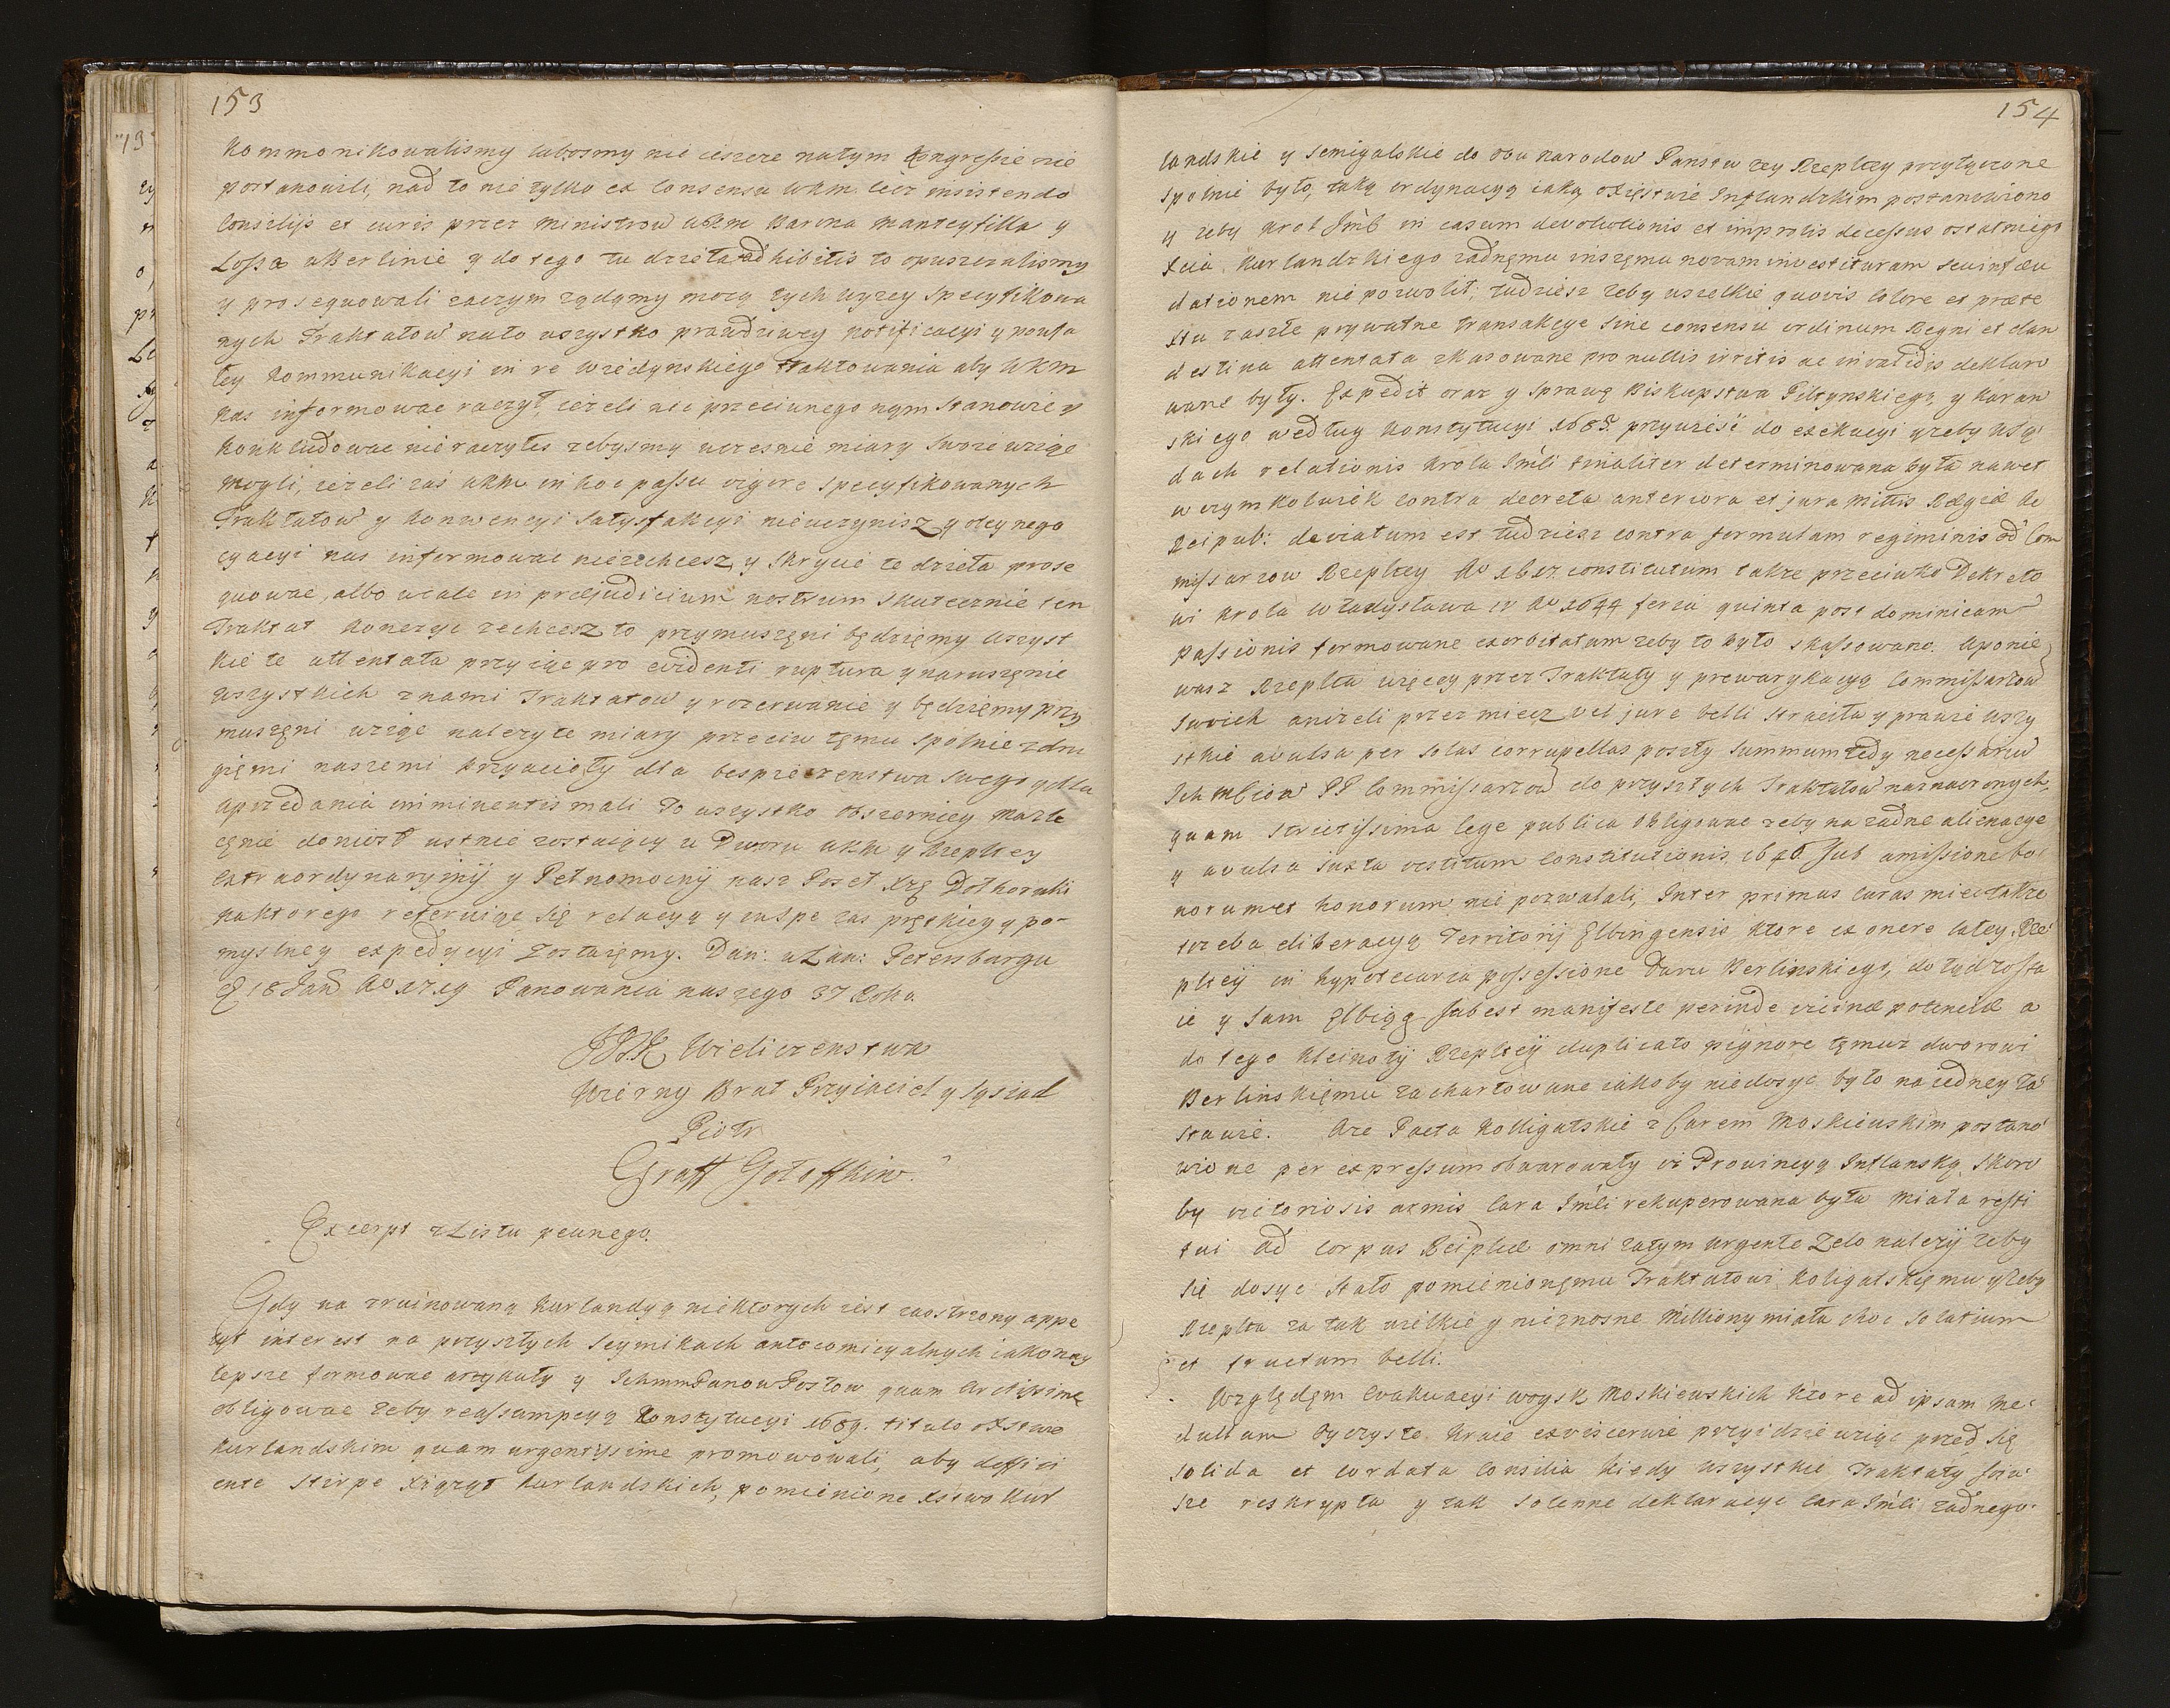 153
Kommonikowalismy lubosmy nic ieszcze natym Kongressie nie
postanowili, nad to nie tylko ex Consensu WKM lecz insistendo
Consilijs et curis przez Ministrow WKM Barona Manteyfilla y
Lossa w Berlinie y do tego tu dzieła adhibitis to opuszczalismy
y prosequowali zaczym żądamy mocą tych wyzey Specyfikowa
nych Traktatow nato wszystko prawdziwey notificacyi y poufa
łey Kommunikacyi in re Wiedynskiego traktowania aby WKM
nas informowac raczył, ieżeli nic przeciwnego nym Stanowic y
Konkludowac nie raczyłes zebysmy wczesnie miary Swoie wziąc
mogli, ieżeli zaś WKM in hoc passu vigore Specyfikowanych
Traktatow y Konwencyi Satysfakcyi nieuczynisz y o tey nego
cyacyi nas informowac niezechcesz y Skrycie te dzieła prose
quowac, albo wcale in præjudicium nostrum Skutecznie ten
Traktat Konczyc zechcesz to przymuszęni będzięmy wszyst
kie te attentata przyiąc pro evidenti ruptura y naruszęnie
wszystkich znami Traktatow y rozerwanie y będzięmy przy
muszęni wziąc należyte miary przeciw tęmu spolnie zdru
gięmi naszemi Przyiacioły dla bespieczenstwa swego y dla
uprzedania imminentis mali To wszystko obszerniey Wasze
ręnie doniosł ustnie zostaiący u Dworu WKM y Rzepltey
extraordynaryiny y Pełnomocny nasz Poseł Xże Dołhoruki
naktorego referuiąc się relacyą y in Spe zas prętkiey y po-
myslney expedycyi Zostaięmy. Dan: w San: Petersburgu
D 18 Jan Ao 1719 Panowania naszego 37 Roku
WK Wieliczenstwa
Wierny Brat Przyiaciel y Sąsiad
Piotr
Graff Gołoffkin.
Excerpt z Listu pewnego.
Gdy na zruinowaną Kurlandyą niektorych iest zaostrzony appe
tyt interest na przyszłych Seymikach antecomicyalnych iako nay
lepsze formowac artykuły y Ichmm Panow Posłow quam arctissime
obligowac żeby reassumpcyą Konstytucyi 1689. titulo o Xstwie
Kurlandskim quam urgentissime promowowali, aby deffici
ente Stirpe Xiążąt Kurlandskich, pomienione Xstwo Kur
154
landskie y Semigalskie do obu Narodow Panstw tey Rzepltey przyłączone
Spolnie było, taką ordynacyą iaką o Xięstwie Inflandzkim postanowiono
y żeby Krol Jmć in casum devolutionis et improlis decessus ostatniego
Xcia Kurlandzkiego żadnęmu inszęmu novam investituram seu infeu
dationem nie pozwolił, tudziesz żeby wszelkie quovis Colore et præte
xtu zaszłe prywatne transakcye Sine consensu ordinum Regni et clan
destina attentata zkasowane pro nullis irritis ac invalidis deklaro
wane były. Expedit oraz y Sprawę Biskupstwa Piltynskiego, y Karan
skiego według Konstytucyi 1685. przywieść do exekucyi y żeby w Są
dach relationis Krola Jmści finaliter determinowana była nawet
w czymkolwiek contra decreta anteriora et jura Mttis Regiæ Ac
Reipub: deviatum est tudziesz contra formulam regiminis od Com
missarzow Rzepltey Ao 1617 constitutum także przeciwko Dekreto
wi Krola Władysława IV Ao 1644 feria quinta post dominicam
passionis formowane exorbitatum zeby to było skassowano. A ponie
wasz Rzeplta więcey przez Traktaty y prewarykacyą Commissarzow
swoich aniżeli przez miecz vel jure belli straciła y prawie wszy
stkie avulsa per solas corruptellas poszły Summum tedy necessariu
Ich Mściow PP Commissarzow do przyszłych Traktatow naznaczonych,
quam strictissima lege publica obligowac żeby na żadne alienacye
y avulsa iuxta vestitum Constitutionis 1646. Sub amissione bo-
norum et honorum nie pozwalali, Inter primas curas miec także
trzeba eliberacyą Territorij Elbingensis ktore ex onere całey Rze
pltey in hypotecaria possessione Dwru Berlinskiego, do tąd zosta
ie y Sam Elbiąg subest manifeste perinde vicinæ potentiæ a
do tego Kleinoty Rzepltey duplicato pignore tęmuz dworowi
Berlinskięmu zachartowane iakoby niedosyc było na iedney Za-
stawie. Aże Pacta Kolligatskie z Carem Moskiewskim postano
wione per expressum obwarowały iż Prowincyą Inflanską, skoro
by victoriosis armis Cara Jmści rekuperowana była miała resti
tui ad Corpus Reiplcæ omni zatym urgente Zelo należy żeby
się dosyc stało pomienionęmu Traktatowi Koligatskięmu y żeby
Rzeplta za tak wielkie y nieznosne Milliony miała choc Solatium
et fructum belli.
Względęm Ewakuacyi woysk Moskiewskich ktore ad ipsam me-
dullam Oyczyste Kraie exviscerwie przyidzie wziąc przed się
Solida et cordata Consilia kiedy wszystkie Traktaty
sze reskrypta y tak Solenne deklaracye Cara Jmści żadnego